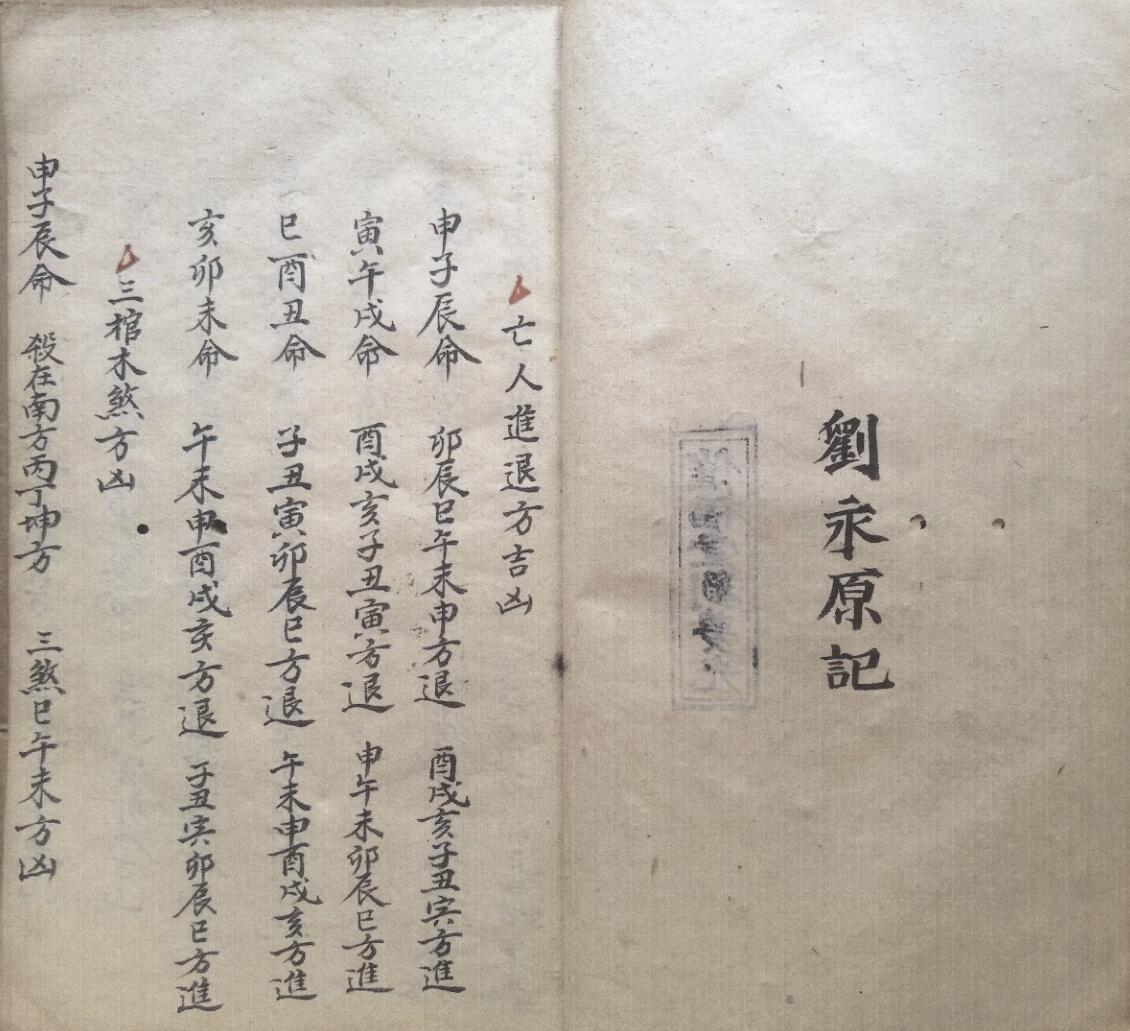 劉永原記
亡人進退方吉凶
申子辰命 卯辰巳午未申方退 酉戌亥子丑寅方進
寅午戌命 酉戌亥子丑寅方退 申午未卯辰巳方進
巳酉丑命 子丑寅卯辰巳方退 午未申酉戌亥方進
亥卯未命 午未申酉戌亥方退 子丑寅卯辰巳方進
三棺木煞方凶
申子辰命 殺在南方丙丁坤方 三煞巳午未方凶